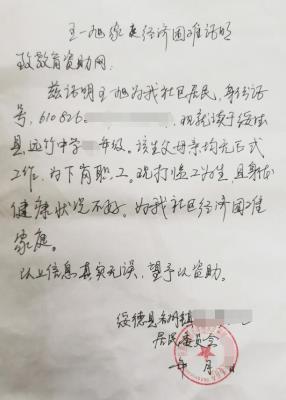 王一旭家庭经济困难证明
致教育资助网:
兹证明王旭为我社区居民,身份证
号,610826 ,现就读于绥德
县远竹中学 年级。该生父母亲均无正式
工作,为下岗职工。现打临工为生,且身体
健康状况不好。为我社区经济困难
家庭。
以上信息真实无误,望予以资助。
绥德县 镇
居民委员会
年 月 日